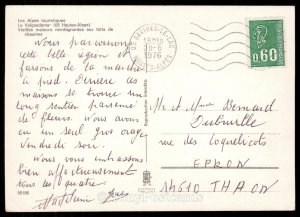 Les Alpes touristiques
Le Valgaudemar (05 Hautes-Alpes)
Vieilles maisons montagnardes aux toits de
chaumes
Nous parcourons
cette belle région et
faisons de la marche
à pied. Derrière les
maisons se trouve un
long sentier parsemé
de fleurs. Nous avons
eu un seul gros orage
Vendredi soir.
Nous vous embrassons
bien affectueusement
tous les quatre
05195
05 SAVINES-LE-LAC
18H
8-6
1976
HTES-ALPES
0,60
M. et Mme Bernard
rue des
EPRON
14610 THAON